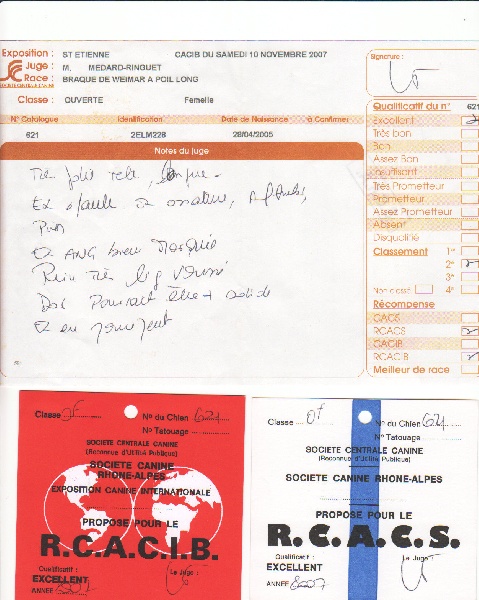 Exposition : ST ETIENNE CACIB DU SAMEDI 10 NOVEMBRE 2007
Juge : M. MEDARD-RINGUET
Race : BRAQUE DE WEIMAR A POIL LONG
SOCIETE CENTRALE CANINE
Classe : OUVERTE Femelle
N° Catalogue Identification Date de Naissance à Confirmer
621 2ELM228 28/04/2005
Notes du juge
Très jolie tête
Ex
Rein
Signature :
Qualificatif du n° 621
Excellent
Très bon
Bon
Assez Bon
Insuffisant
Très Prometteur
Prometteur
Assez Prometteur
Absent
Disqualifié
Classement 1e
2e
3e
Non classé 4e
Récompense
CACS
RCACS
CACIB
RCACIB
Meilleur de race
Classe OF N° du Chien 621
N° Tatouage
SOCIETE CENTRALE CANINE
(Reconnue d'Utilité Publique)
SOCIETE CANINE
RHONE-ALPES
EXPOSITION CANINE INTERNATIONALE
PROPOSE POUR LE
R.C.A.C.I.B.
Qualificatif :
EXCELLENT
Le Juge :
ANNÉE 2007
Classe OF N° du Chien 621
N° Tatouage
SOCIETE CENTRALE CANINE
(Reconnue d'Utilité Publique)
SOCIETE CANINE RHONE-ALPES
PROPOSE POUR LE
R.C.A.C.S.
Qualificatif :
EXCELLENT
Le Juge
ANNÉE 2007